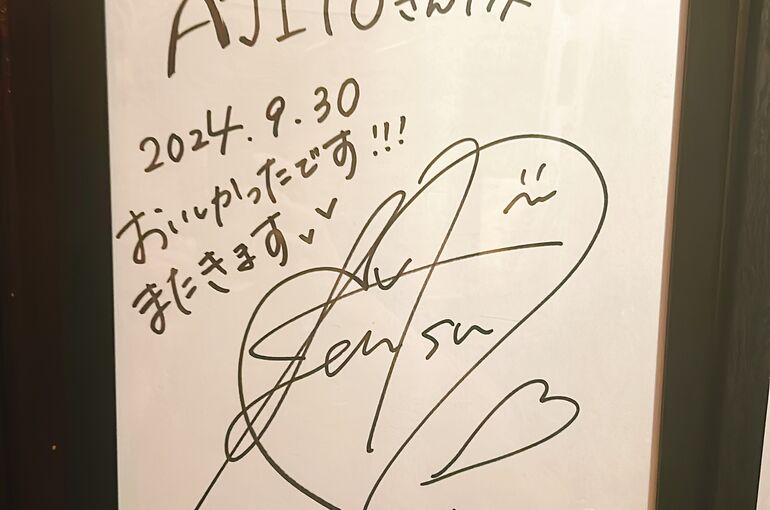 AJITOさん江
2024.9.30
おいしかったです!!!
またきます